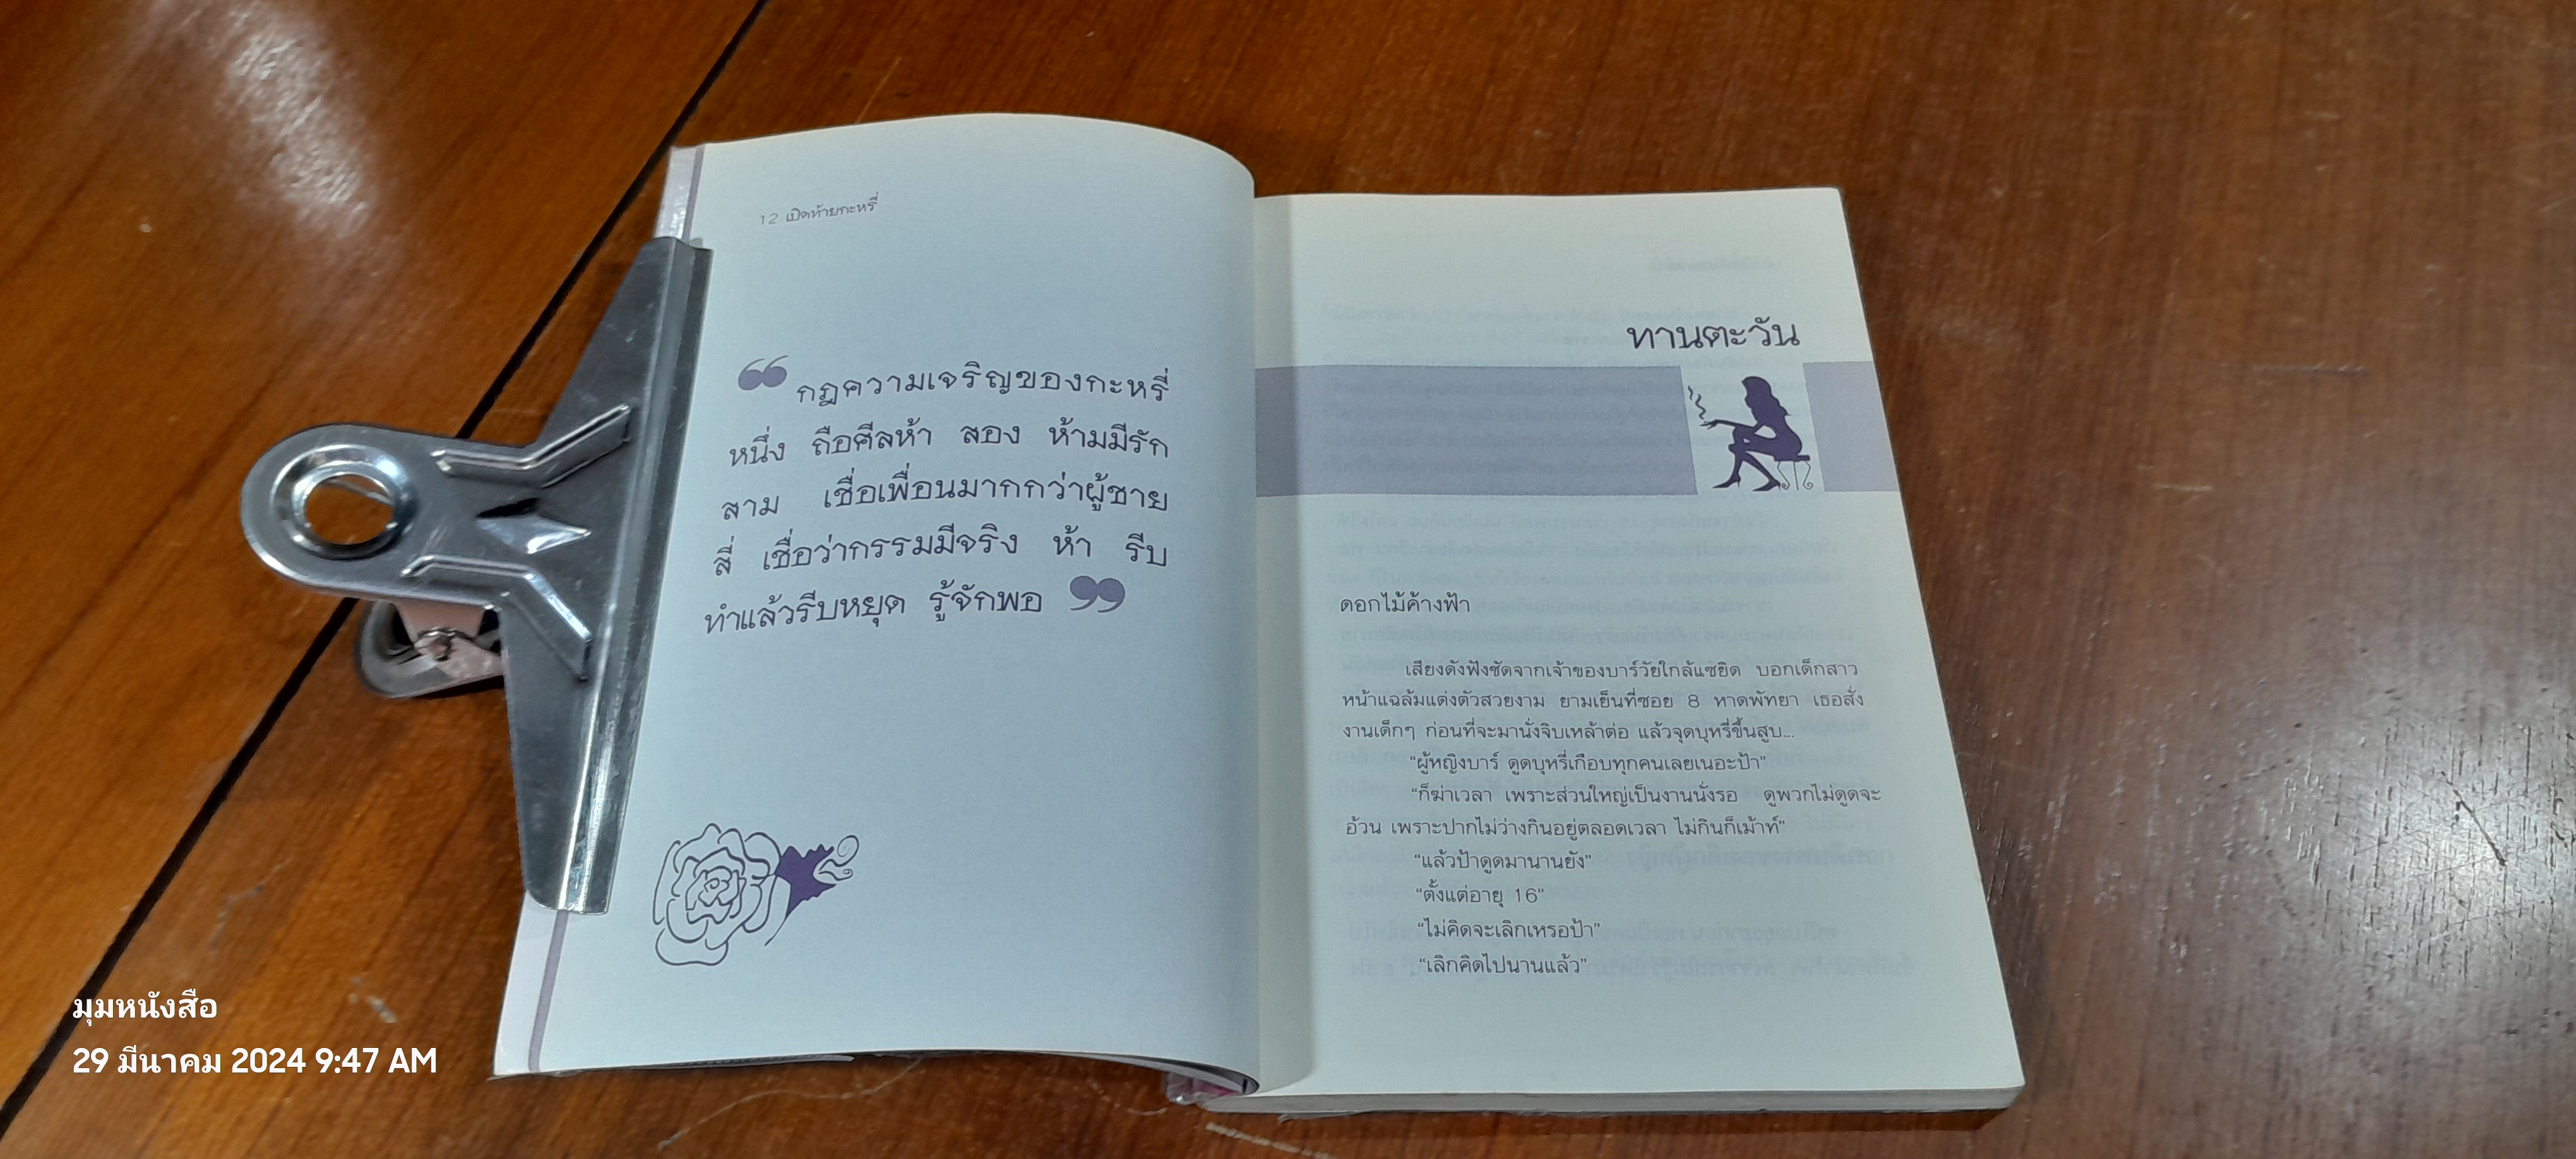 12 เปิดท้ายกะหรี่
“ กฎความเจริญของกะหรี่
หนึ่ง ถือศีลห้า สอง ห้ามมีรัก
สาม เชื่อเพื่อนมากกว่าผู้ชาย
สี่ เชื่อว่ากรรมมีจริง ห้า รีบ
ทำแล้วรีบหยุด รู้จักพอ ”
ทานตะวัน
ดอกไม้ค้างฟ้า
เสียงดังฟังชัดจากเจ้าของบาร์วัยใกล้แซยิด บอกเด็กสาว
หน้าแฉล้มแต่งตัวสวยงาม ยามเย็นที่ซอย 8 หาดพัทยา เธอสั่ง
งานเด็กๆ ก่อนที่จะมานั่งจิบเหล้าต่อ แล้วจุดบุหรี่ขึ้นสูบ...
“ผู้หญิงบาร์ ดูดบุหรี่เกือบทุกคนเลยเนอะป้า”
“ก็ฆ่าเวลา เพราะส่วนใหญ่เป็นงานนั่งรอ ดูพวกไม่ดูดจะ
อ้วน เพราะปากไม่ว่างกินอยู่ตลอดเวลา ไม่กินก็เม้าท์”
“แล้วป้าดูดมานานยัง”
“ตั้งแต่อายุ 16”
“ไม่คิดจะเลิกเหรอป้า”
“เลิกคิดไปนานแล้ว”
มุมหนังสือ
29 มีนาคม 2024 9:47 AM